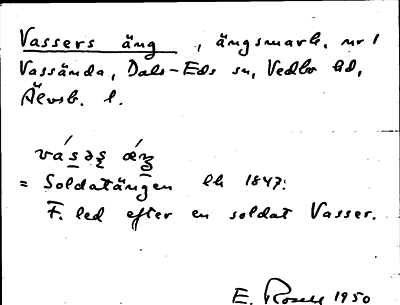 Vassers äng, ängsmark, nr 1
Vassända, Dals-Eds sn, Vedbo hd,
Älvsb. l.
vásəş ǽŋ
= Soldatängen lk 1847.
F. led efter en soldat Vasser.
E. Rosell 1950